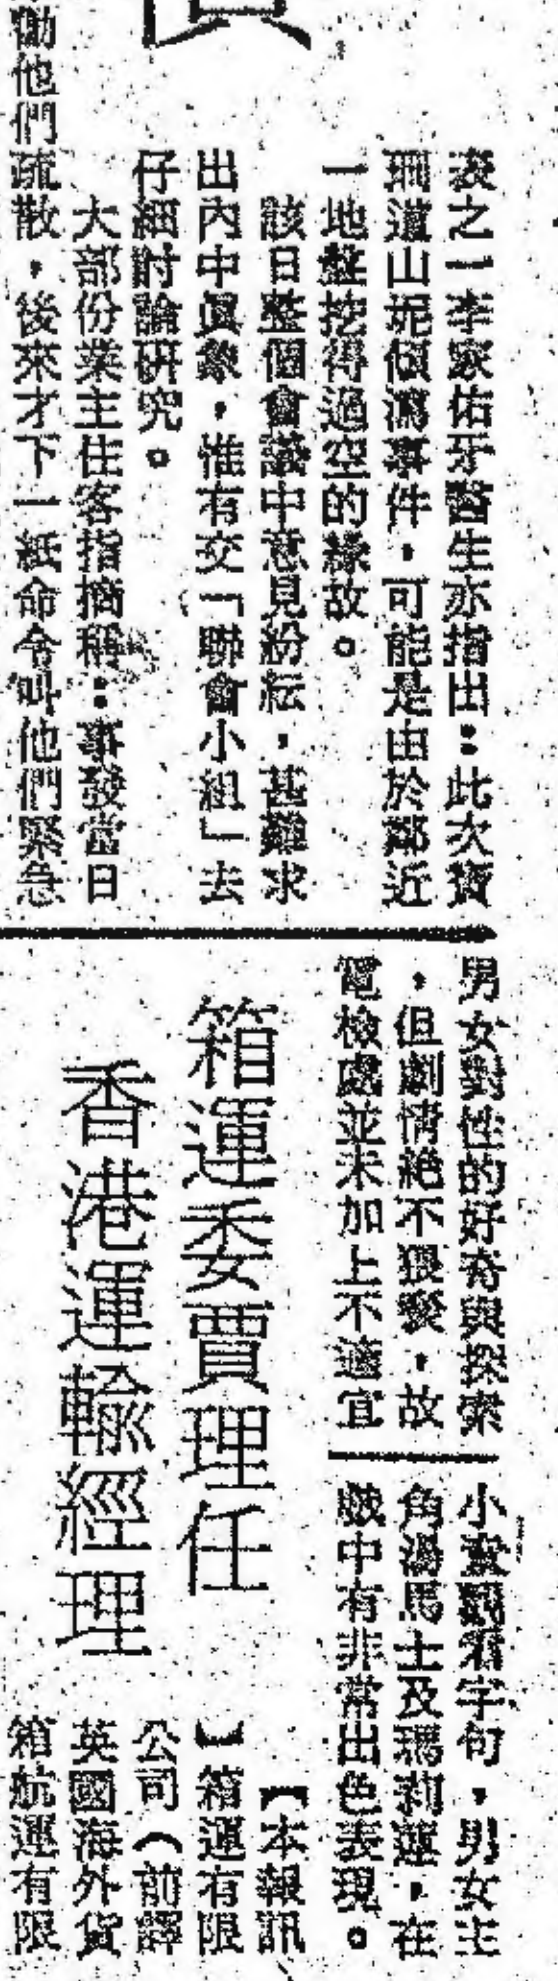 表之一李家佑牙醫生亦指出：此次寶
珊道山坭傾瀉事件，可能是由於鄰近
一地盤挖得過空的緣故。
該日整個會議中意見紛紜，甚難求
出內中眞象，惟有交「聯會小組」去
仔細討論研究。
大部份業主住客指摘稱：事發當日
勸他們疏散，後來才下一紙命令叫他們緊急
男女對性的好奇與探索
，但劇情絕不猥褻，故
電檢處並未加上不適宜
小童觀看字句，男女主
角湯馬士及瑪莉蓮，在
戲中有非常出色表現。
箱運委賈理任
香港運輸經理
【本報訊
】箱運有限
公司（前譯
英國海外貨
箱航運有限